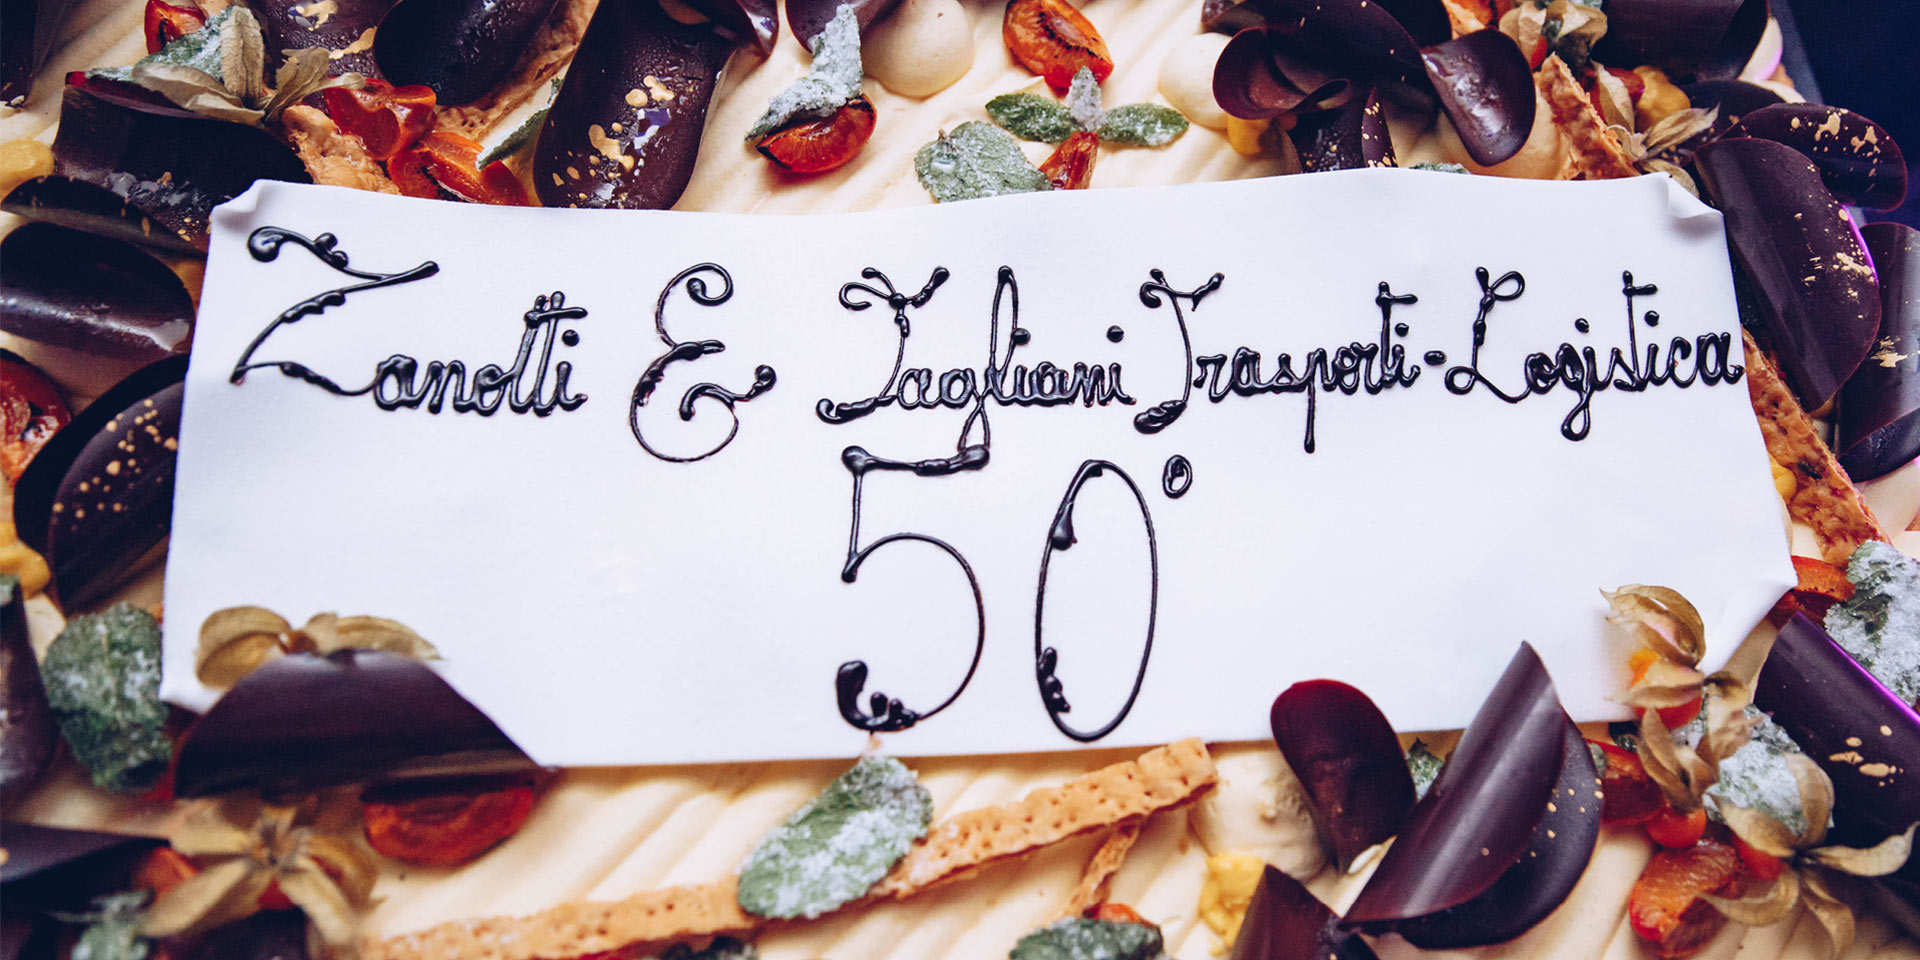 Zanotti & Tagliani Trasporti-Logistica
50°